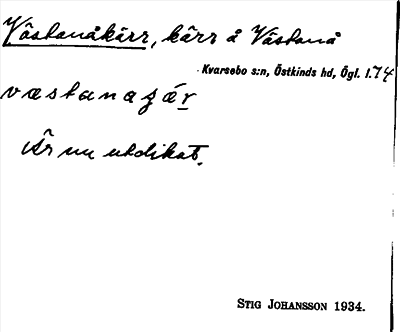 Västanåkärr, kärr å Västanå
Kvarsebo s:n, Östkinds hd, Ögl. l. 74
Är nu utdikat.
STIG JOHANSSON 1934.